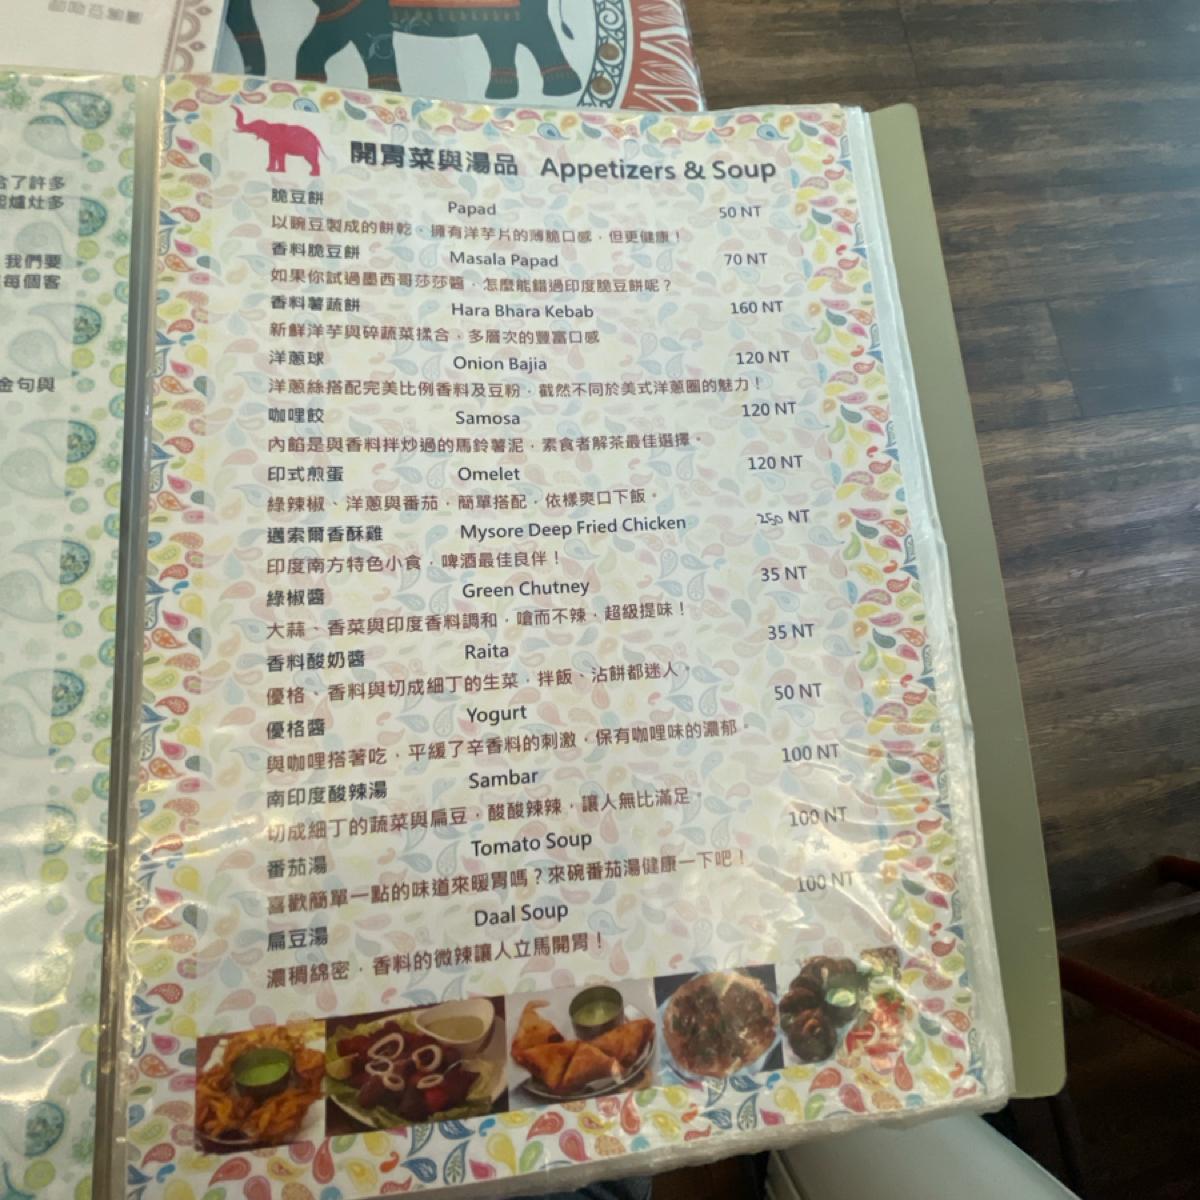 開胃菜與湯品 Appetizers & Soup
脆豆餅 Papad 50 NT
以豌豆製成的餅乾、擁有洋芋片的薄脆口感,但更健康!
香料脆豆餅 Masala Papad 70 NT
如果你試過墨西哥莎莎醬,怎麼能錯過印度脆豆餅呢?
香料薯蔬餅 Hara Bhara Kebab 160 NT
新鮮洋芋與碎蔬菜揉合,多層次的豐富口感
洋蔥球 Onion Bajia 120 NT
洋蔥絲搭配完美比例香料及豆粉,截然不同於美式洋蔥圈的魅力!
咖哩餃 Samosa 120 NT
內餡是與香料拌炒過的馬鈴薯泥,素食者解茶最佳選擇。
印式煎蛋 Omelet 120 NT
綠辣椒、洋蔥與番茄,簡單搭配,依樣爽口下飯。
邁索爾香酥雞 Mysore Deep Fried Chicken 250 NT
印度南方特色小食,啤酒最佳良伴!
綠椒醬 Green Chutney 35 NT
大蒜、香菜與印度香料調和,嗆而不辣,超級提味!
香料酸奶醬 Raita 35 NT
優格、香料與切成細丁的生菜,拌飯、沾餅都迷人。
優格醬 Yogurt 50 NT
與咖哩搭著吃,平緩了辛香料的刺激,保有咖哩味的濃郁。
南印度酸辣湯 Sambar 100 NT
切成細丁的蔬菜與扁豆,酸酸辣辣,讓人無比滿足。
番茄湯 Tomato Soup 100 NT
喜歡簡單一點的味道來暖胃嗎?來碗番茄湯健康一下吧!
扁豆湯 Daal Soup 100 NT
濃稠綿密,香料的微辣讓人立馬開胃!
合了許多
爐灶多
我們要
每個客
金句與